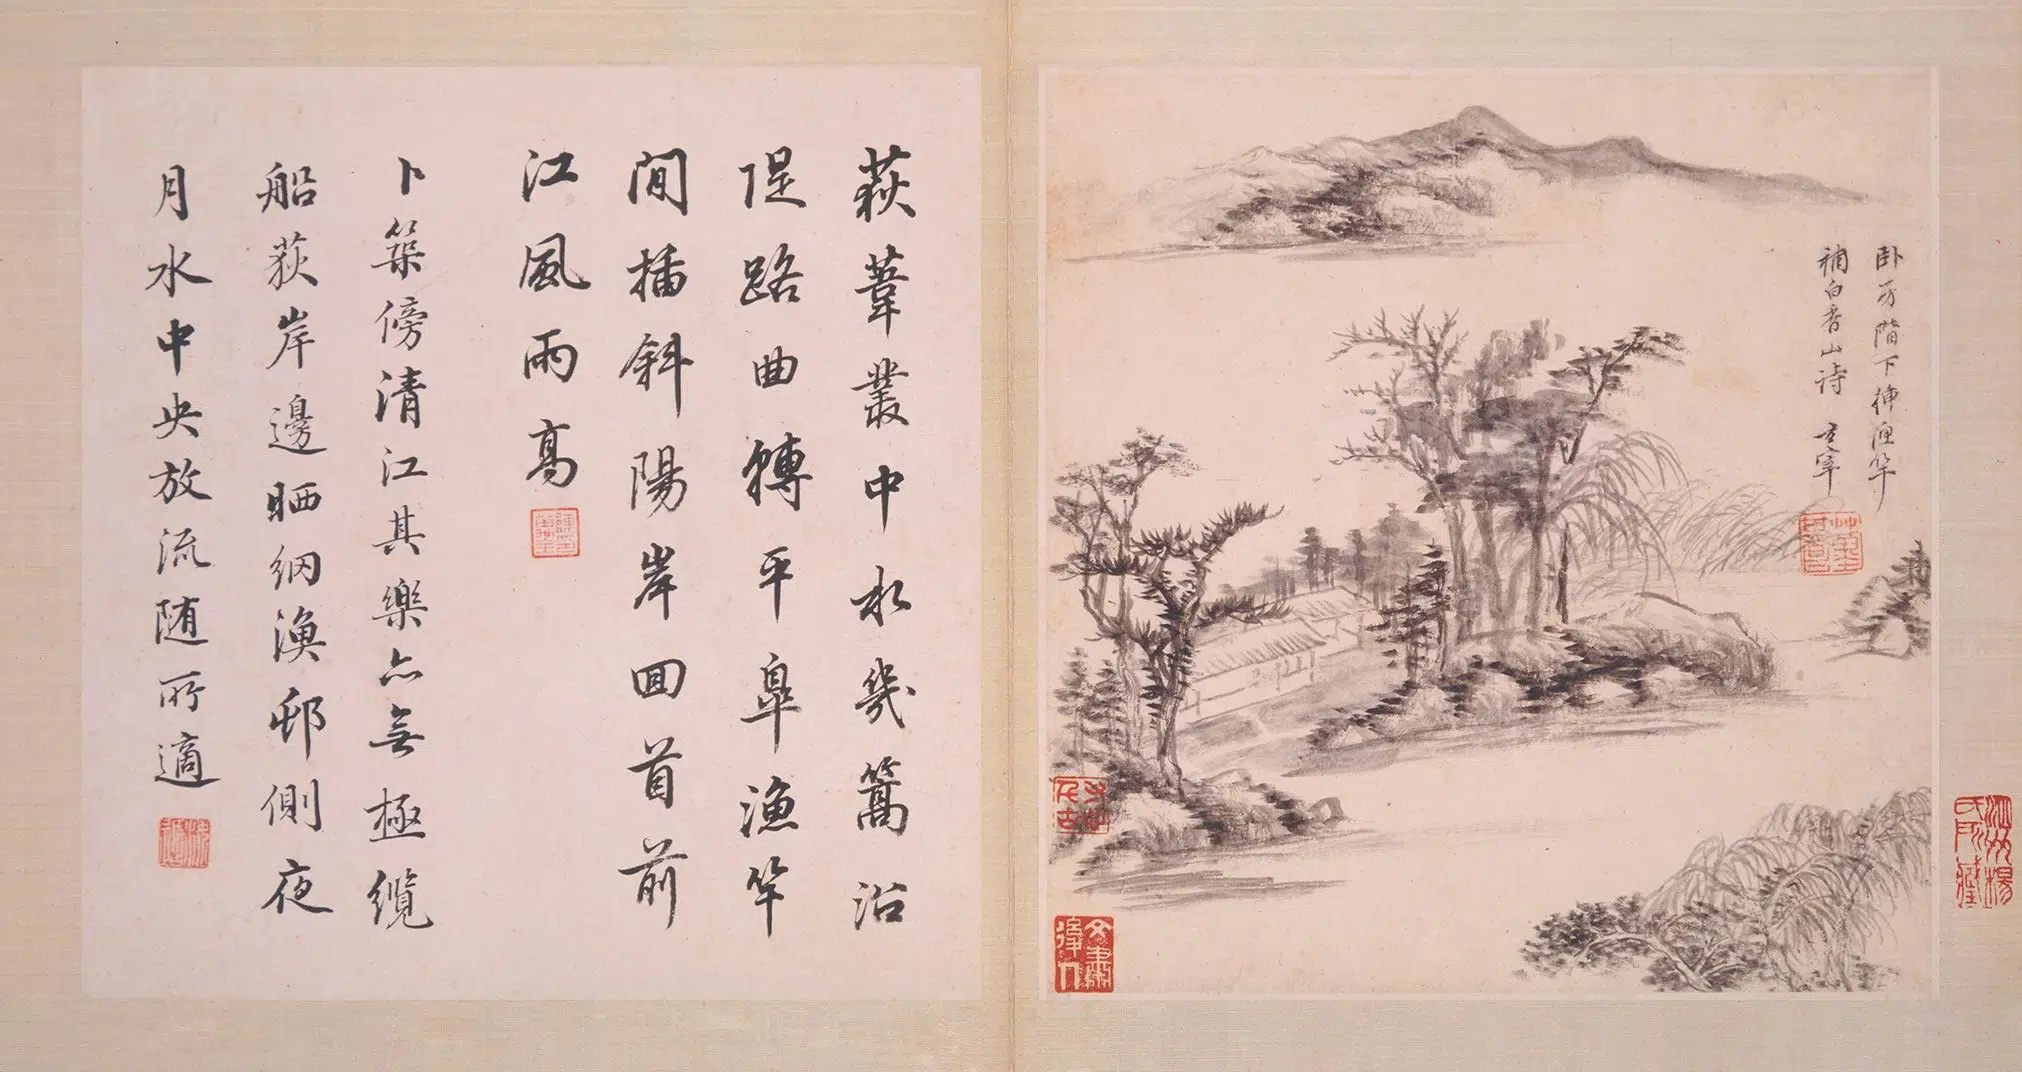 卧房階下挿漁竿
補白香山詩 玄宰
荻葦叢中水幾篙沿
隄路曲轉平皋漁竿
閒插斜陽岸回首前
江風雨高
卜築傍清江其樂亦無極纜
船荻岸邊晒網漁邨側夜
月水中央放流随所適
文肅後人